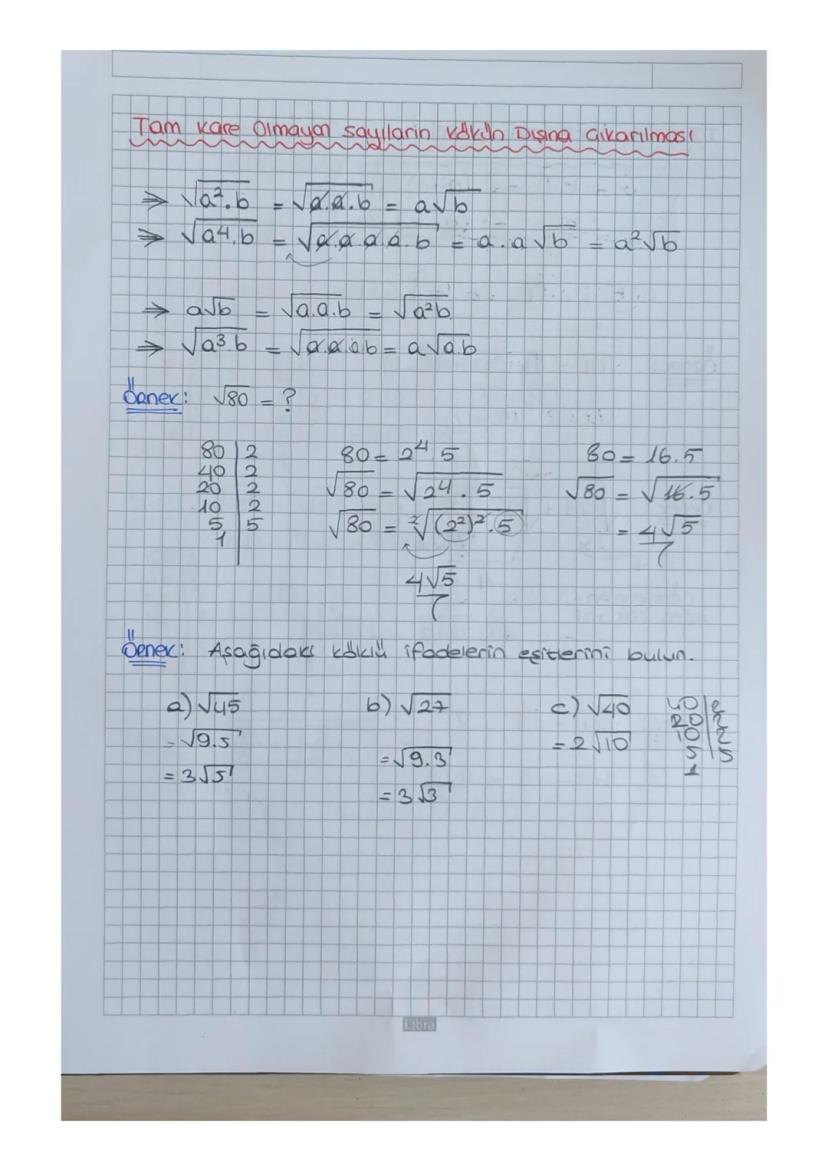 Tam kare Olmayan sayıların kökün Dışına Çıkarılması
⇒ √a².b = √a.a.b = a√b
⇒ √a⁴.b = √a.a.a.a.b = a.a√b = a²√b
⇒ a√b = √a.a.b = √a²b
⇒ √a³.b = √a.a.a.b = a√a.b
Örnek: √80 = ?
80 | 2
40 | 2
20 | 2
10 | 2
5 | 5
1
80 = 2⁴ 5
√80 = √2⁴ . 5
√80 = ²√(2²)² . 5
4√5
80 = 16.5
√80 = √16.5
= 4√5
Örnek: Aşağıdaki köklü ifadelerin eşitlerini bulun.
a) √45
= √9.5
= 3√5
b) √27
= √9.3
= 3√3
c) √40
= 2√10
40 | 2
20 | 2
10 | 2
5 | 5
1
Libra